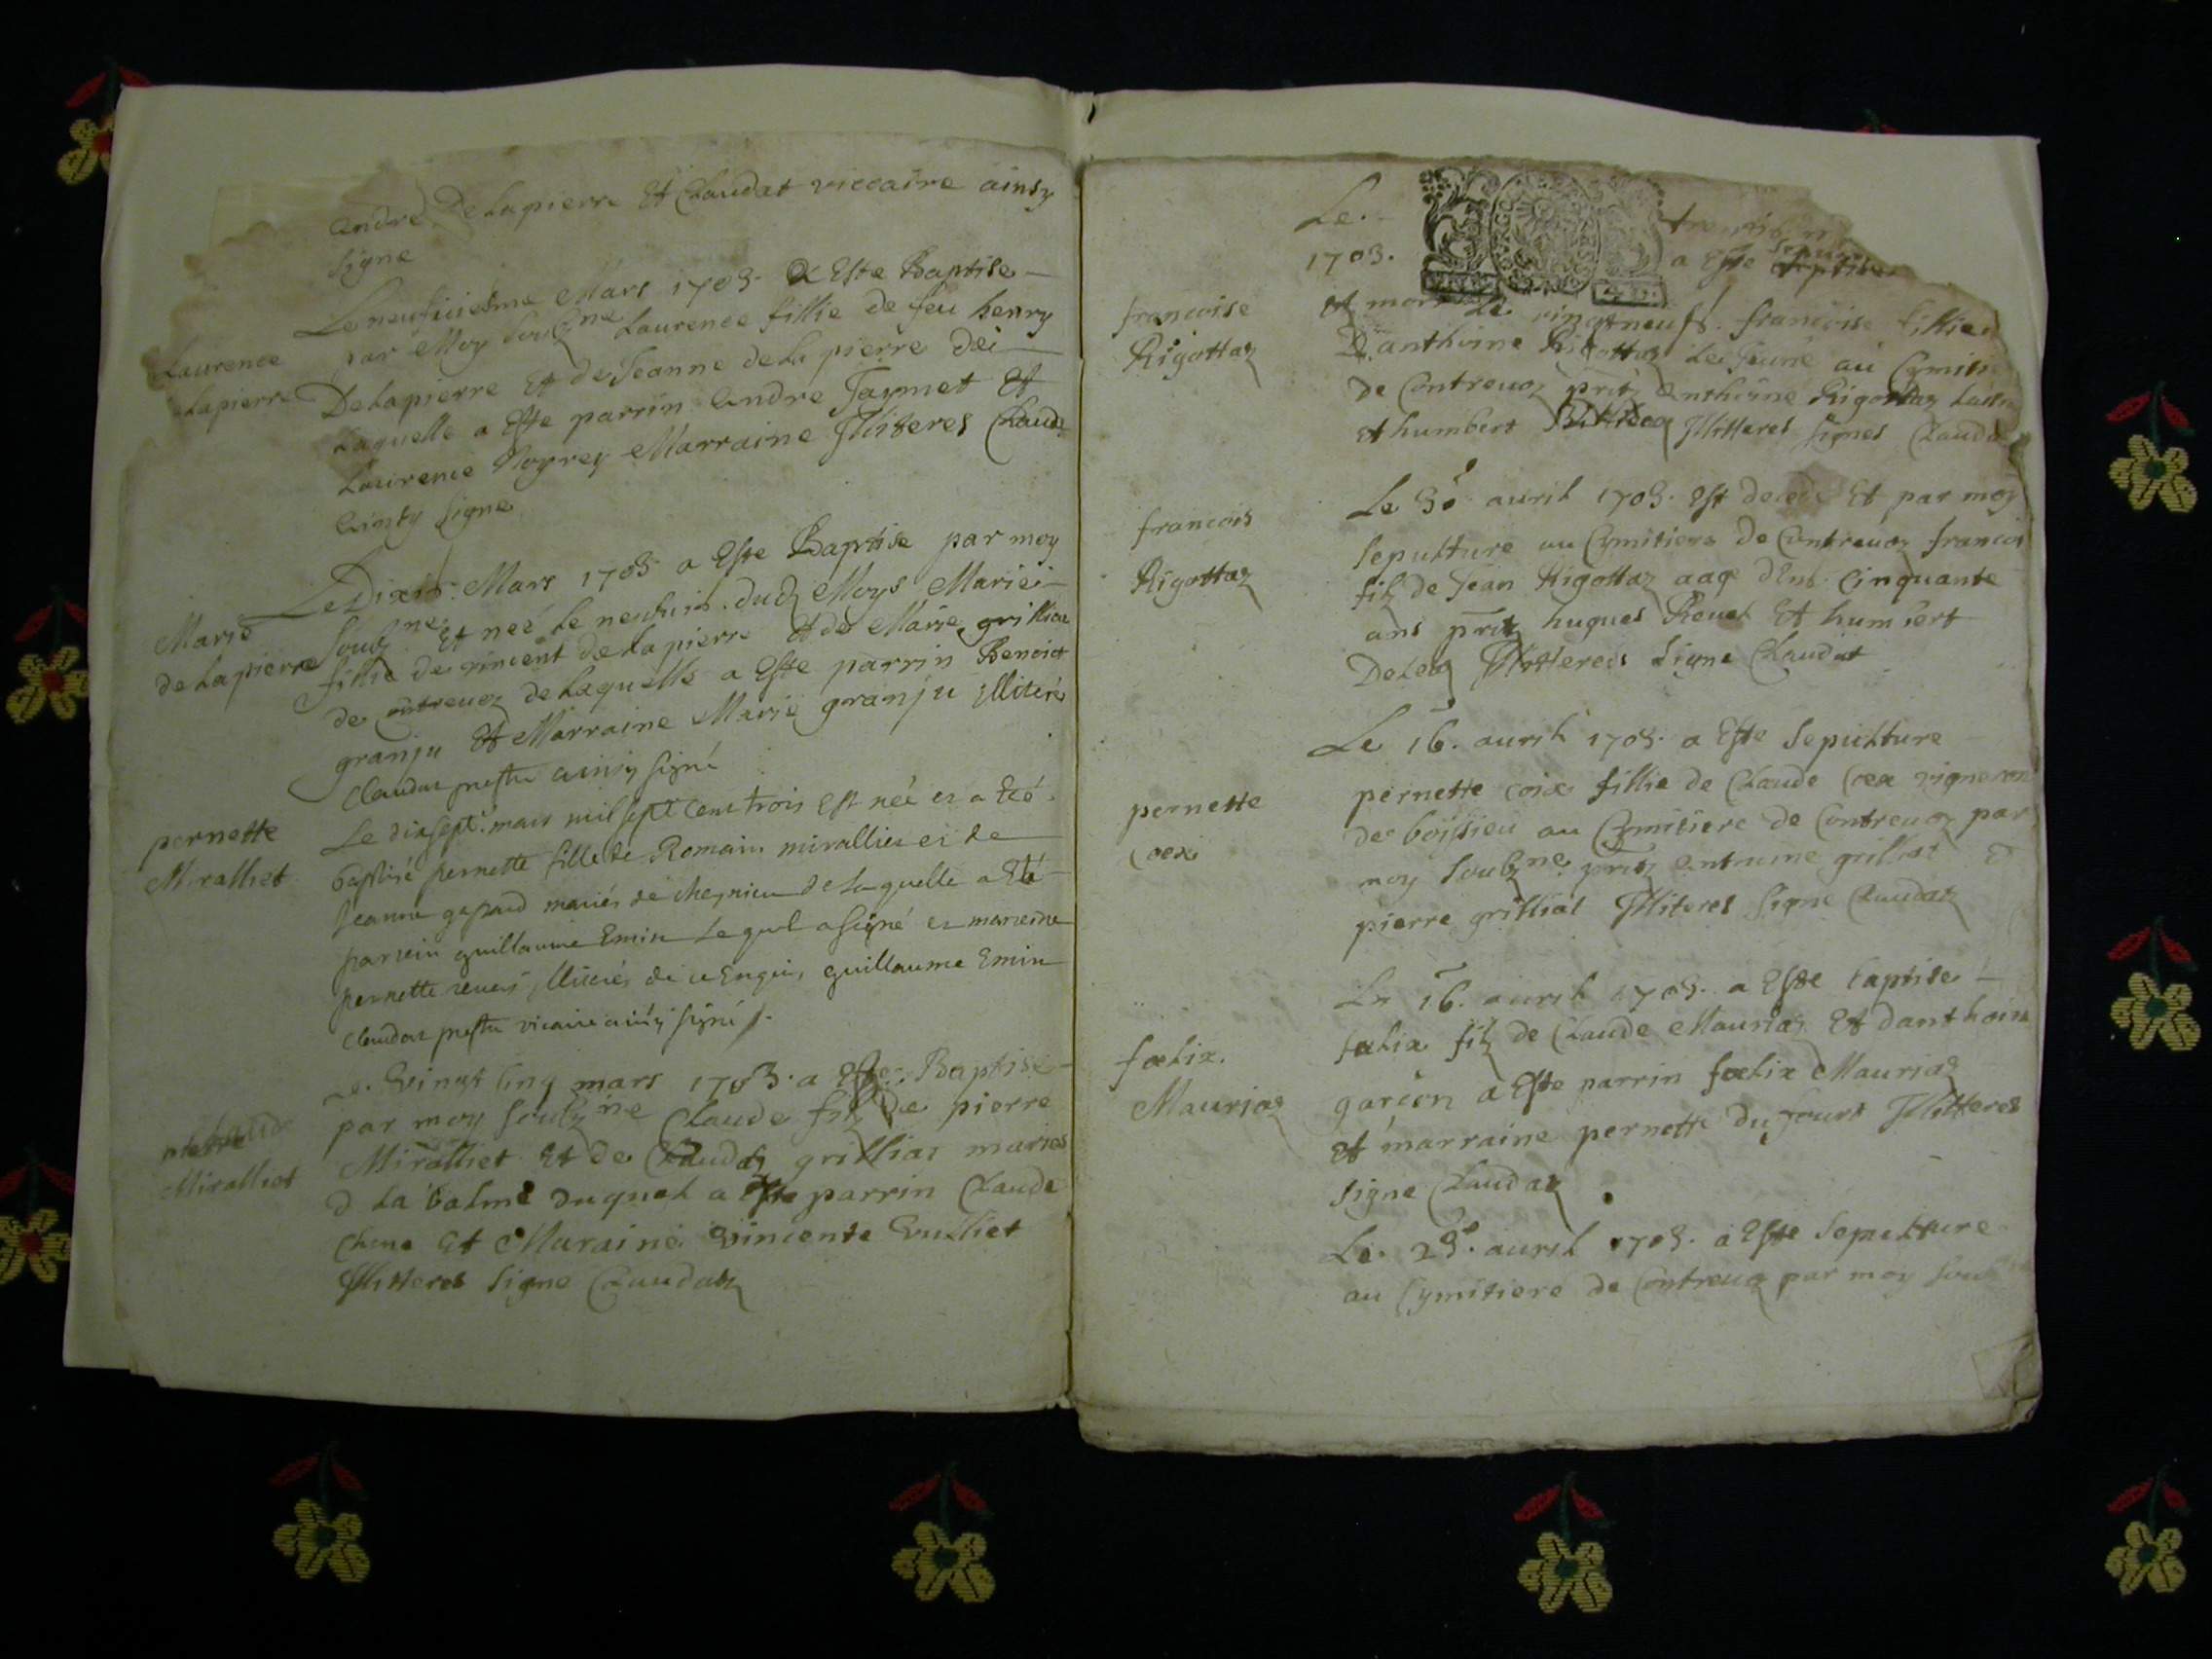 andre Delapierre Et Claudat viccaire ainsy
signe
Laurence
Lapierre
Le neufuiesme Mars 1703. a Este Baptise
par Moy soubz ne Laurence fillie de feu henry
Delapierre Et de Jeanne de la pierre de
Laquelle a Este parrin andre Et
Laurence Noyrey Marraine Illiteres Claud
ainsy signe
Marie
de Lapierre
Le Dix Mars 1703 a Este Baptise par moy
soubz ne Et neé Le dud Moys Marie
fillie de vincent de Lapierre Et de Marie grilliat
de contreuoz de Laquelle a Este parrin Benoict
granju Et Marraine Marie granju illiteré
Claudat prestre ainsy signé
pernette
Miralliet
Le dixsept mars mil sept cens trois est neé et a Eté
baptisé pernette fille de Romain miralliet et de
Jeanne mariés de cheynieu de Laquelle a Eté
parrein guillaume Emin Lequel a signé et mareine
pernette illiteres de ce Enquis, guillaume Emin
Claudat prestre vicaire ainsy signé
Miralliet
Le vingt cinq mars 1703. a Este Baptise
par moy soubz ne Claude filz De pierre
Miralliet Et de Claudaz grilliat maries
d La balme duquel a Este parrin Claude
chene Et Maraine vincente vulliet
Illitteres signe Claudatz
Le
1703. a Este
francoise
Rigottaz
Et mort Le vingtneuf. francoise fillie
D anthoine Rigottaz Le Jeune au Cymiti
de Contreuoz pntz anthoine Rigottaz
Et humbert Illitteres signes Claudat
francois
Rigottaz
Le 30 auril 1703. Est decede Et par moy
sepulture au Cymitiere de Contreuoz francois
filz de Jean Rigottaz aage d'Enb. Cinquante
ans pntz hugues Reuel Et humbert
Illitteres signe Claudat
pernette
coex
Le 16. auril 1703. a Este sepulture
pernette coix fillie de Claude coex vigneron
de boissieu au Cymitiere de Contreuoz par
moy soubz ne pntz antoine grilliat Et
pierre grilliat Illiteres signe Claudatz
foelix.
Mauriaz
Le 16. auril 1703. a Este baptise
foelix filz de Claude Mauriaz Et danthoin
garcon a Este parrin foelix Mauriaz
Et marraine pernette du fourt Illitteres
signe Claudaz
Le 23. auril 1703. a Este sepulture
au Cymitiere de Contreuoz par moy soub